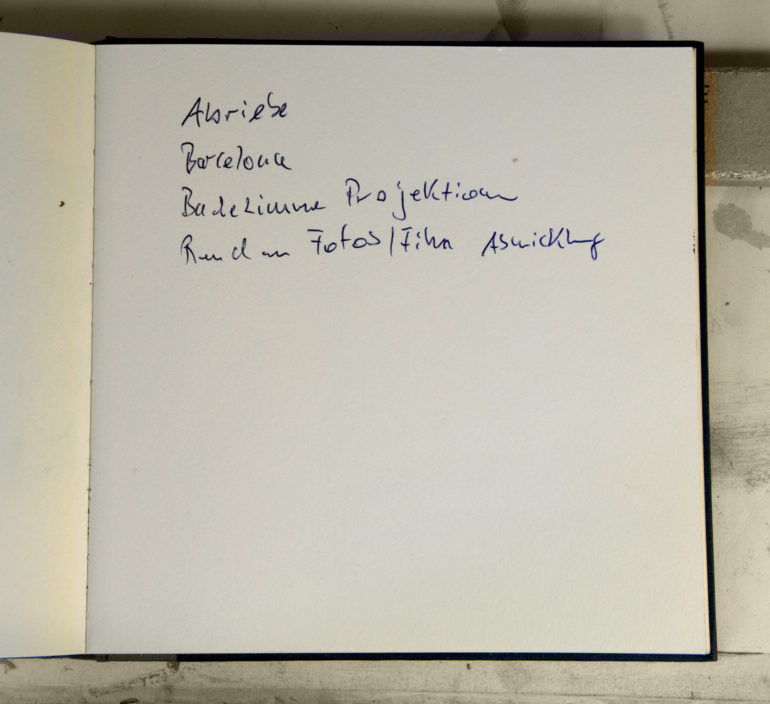 Abriebe
Barcelona
Badezimmer Projektion
Fotos/Film Abwicklung